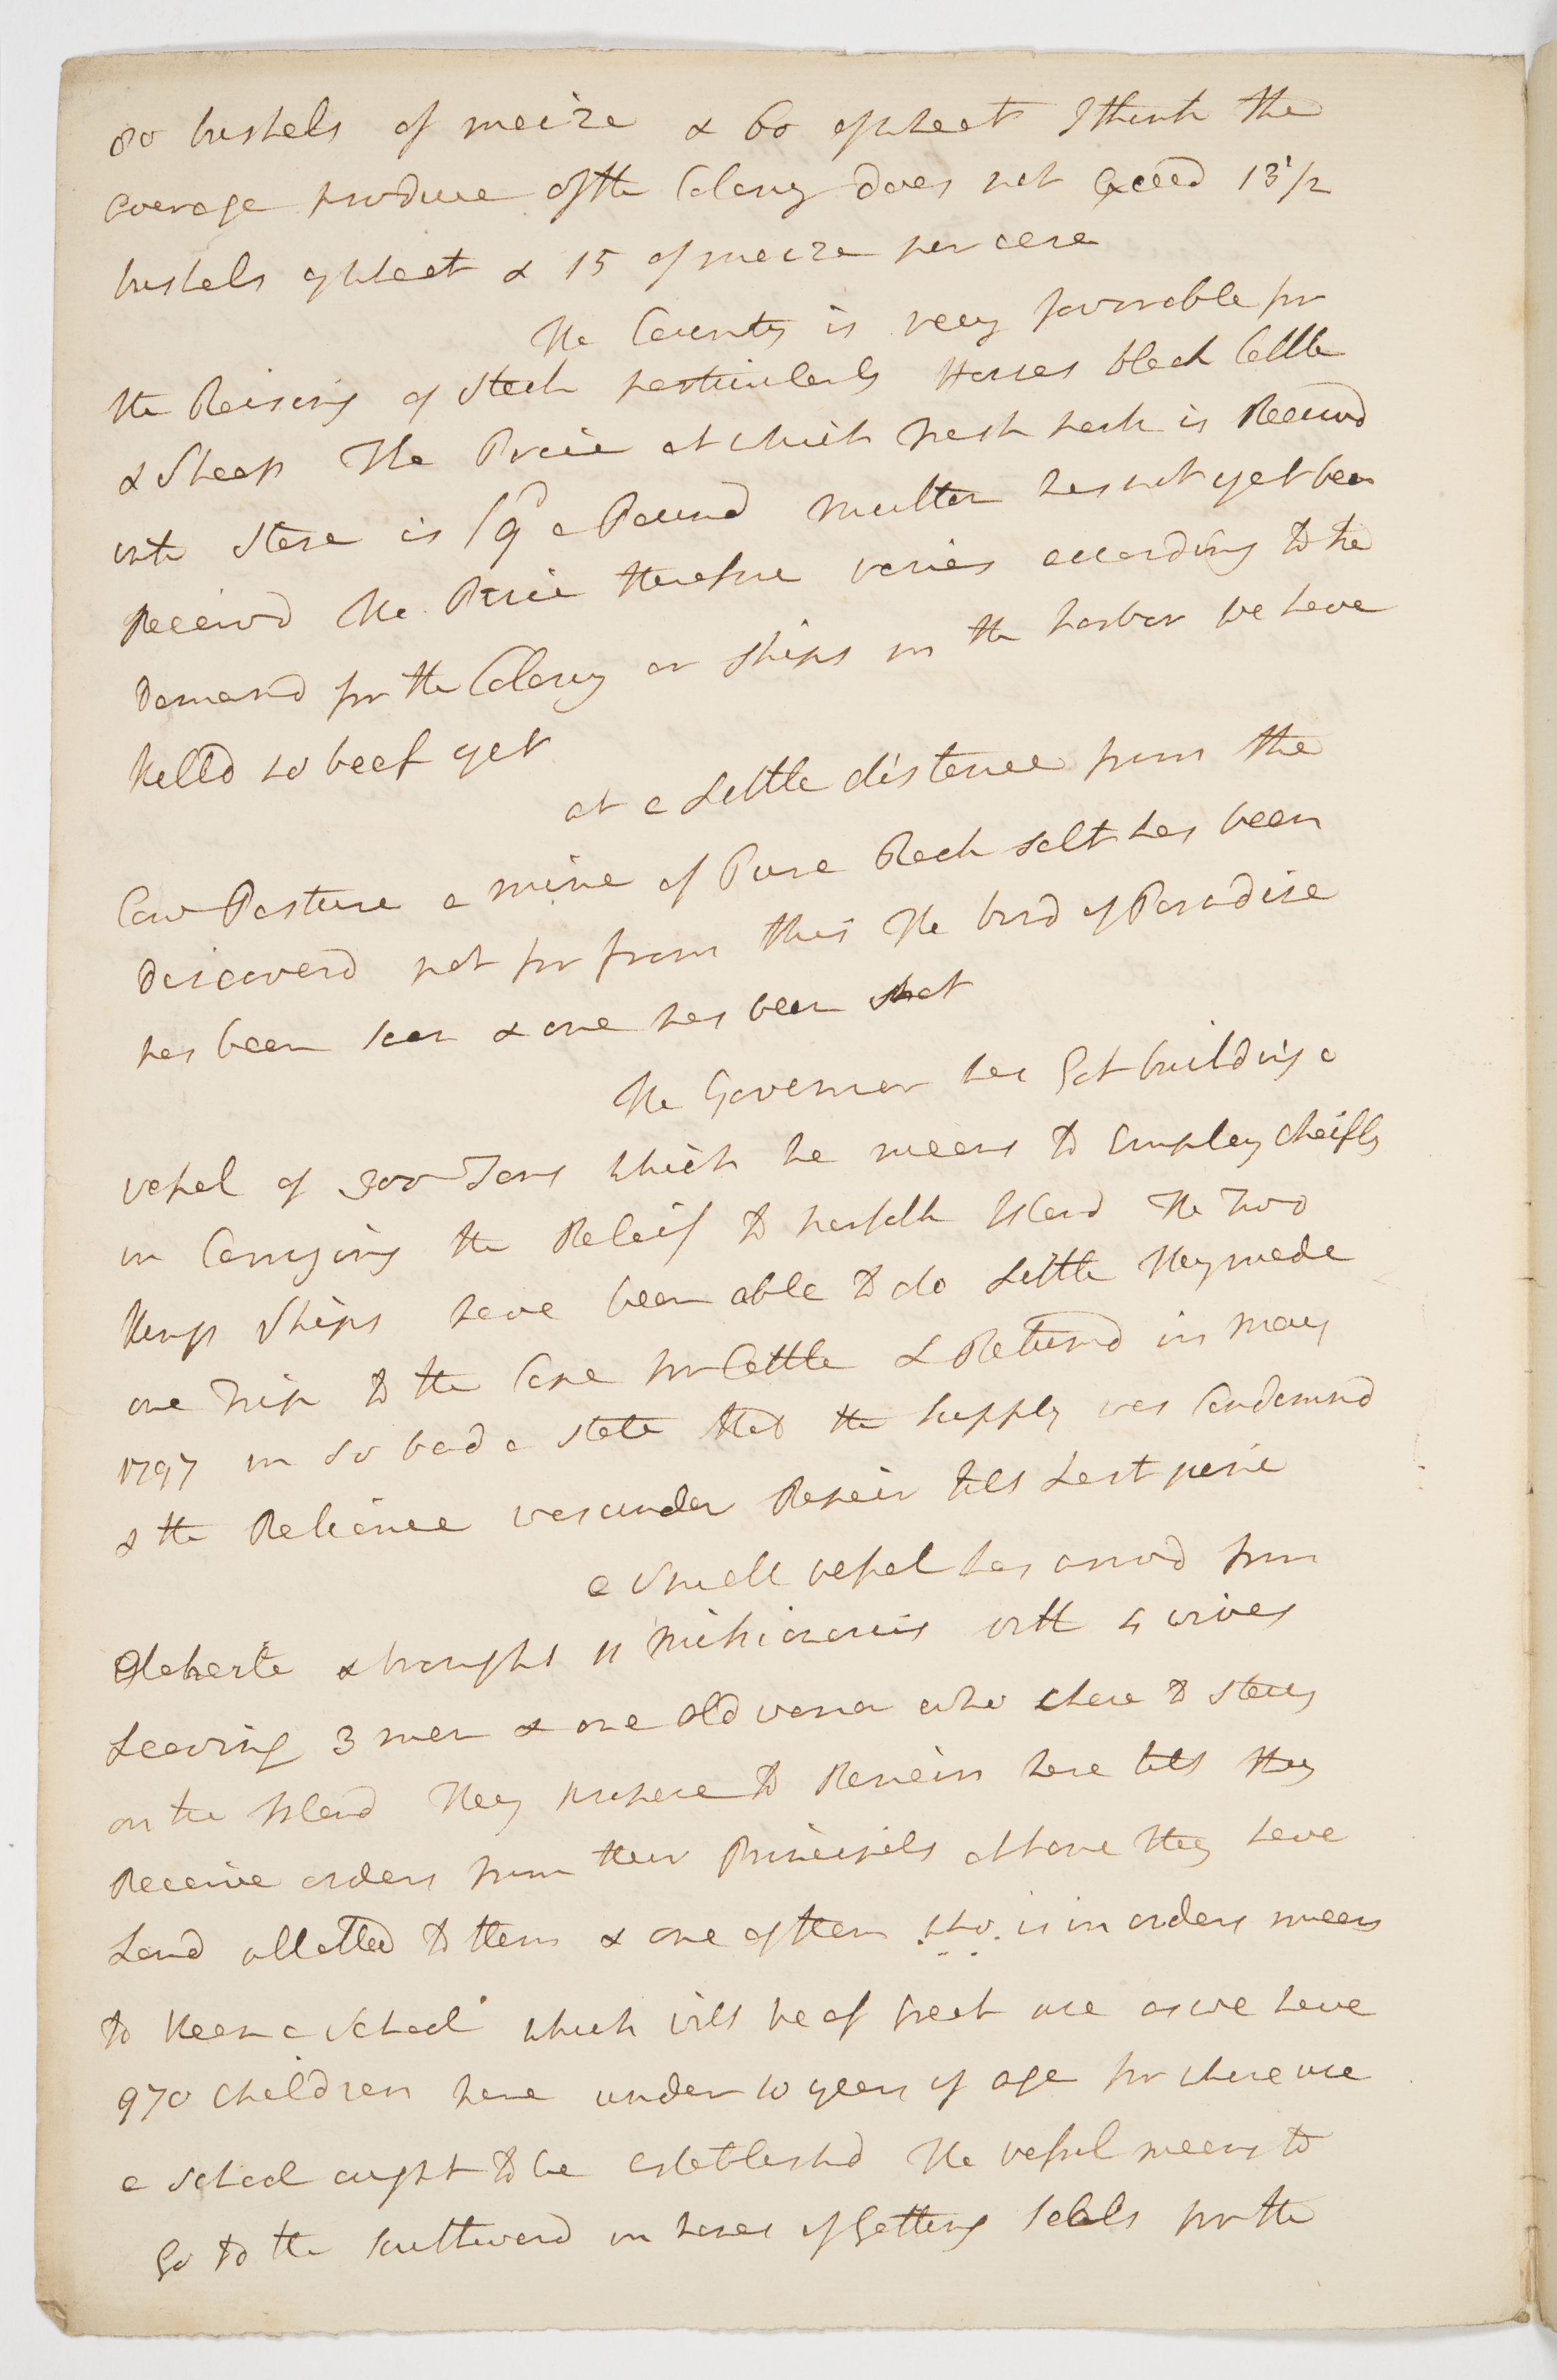 80 bushels of maize & 60 of wheat I think the
average produce of the Colony does not exceed 13 1/2
bushels of wheat & 15 of maize per acre
The Country is very favorable for
the Raising of Stock particularly Horses black Cattle
& Sheep The Price at which fresh pork is Receivd
into Store is 1/9d a Pound mutton has not yet been
Receivd The Price therefore varies according to the
Demand for the Colony or ships in the harbor We have
killd no beef yet
at a Little distance from the
Cow Pasture a mine of Pure Rock salt has been
discoverd not far from this The bird of Paradise
has been seen & one has been shot
The Governor has Got building a
vessel of 300 Tons which he means to Employ cheifly
in Carrying the Releif to norfolk Island The Two
Kings Ships have been able to do Little They made
one Trip to the Cape for Cattle & Returnd in May
1797 in so bad a state that the Supply was Condemnd
& the Reliance was under Repair till Last june
a Small vessel has arrivd from
Otaheite & brought 11 Missionaries with 4 wives
Leaving 3 men & one old woman who chose to stay
on the Island They propose to Remain here till they
Receive orders from their Principals at home they have
Land allotted to them & one of them who is in orders means
to Keep a School which will be of Great use as we have
970 children here under 10 years of age for whose use
a School ought to be establishd The vessel means to
Go to the Southward in hopes of Getting seals for the